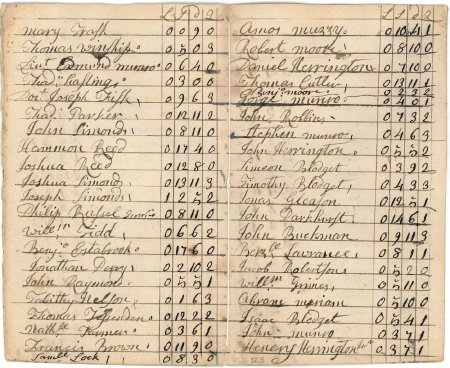 L S d q
mary Trask 0 0 9 0
Thomas winship 0 5 0 3
Lieut Edmund munro 0 6 4 0
Thad Hasting 0 3 0 0
Joseph Fisk 0 9 6 3
Thad. Parker 0 12 11 2
John Simonds 0 8 11 0
Hammon Reed 0 17 4 0
Joshua Reed 0 12 8 0
Joshua Simond 0 13 11 3
Joseph Simond 1 2 5 2
Philip Rusel 0 8 11 0
Will.m Tidd 0 6 6 2
Benj. Estabrook 0 17 6 0
Jonathan Perry 0 2 10 2
John Raymond 0 5 5 1
Tabitha Nelson 0 1 6 3
Thomas Fessenden 0 12 2 2
Nath.ll Farmer 0 3 6 1
Francis Brown 0 11 9 0
Sam.ll Lock 0 8 3 0
L S d q
Amos muzzy 0 10 4 1
Robert moore 0 8 10 0
Daniel Herrington 0 7 10 0
Thomas Cutler 0 13 11 1
Benj. moore 0 2 3 2
munro 0 4 0 1
John Rollins 0 7 3 2
Stephen munro 0 4 6 3
John Herrington 0 5 5 2
Simeon Blodget 0 3 9 2
Timothy Blodget 0 4 3 3
Jonas Gleason 0 12 5 1
John Parkhurst 0 14 6 1
John Buckman 0 9 11 3
Lawrance 0 8 11
Jacob Robertson 0 5 2 0
will.m Grimes 0 5 11 0
Abram meriam 0 5 10 0
Isaac Blodget 0 5 4 1
John munro 0 3 7 1
Henery Herrington 0 3 7 1